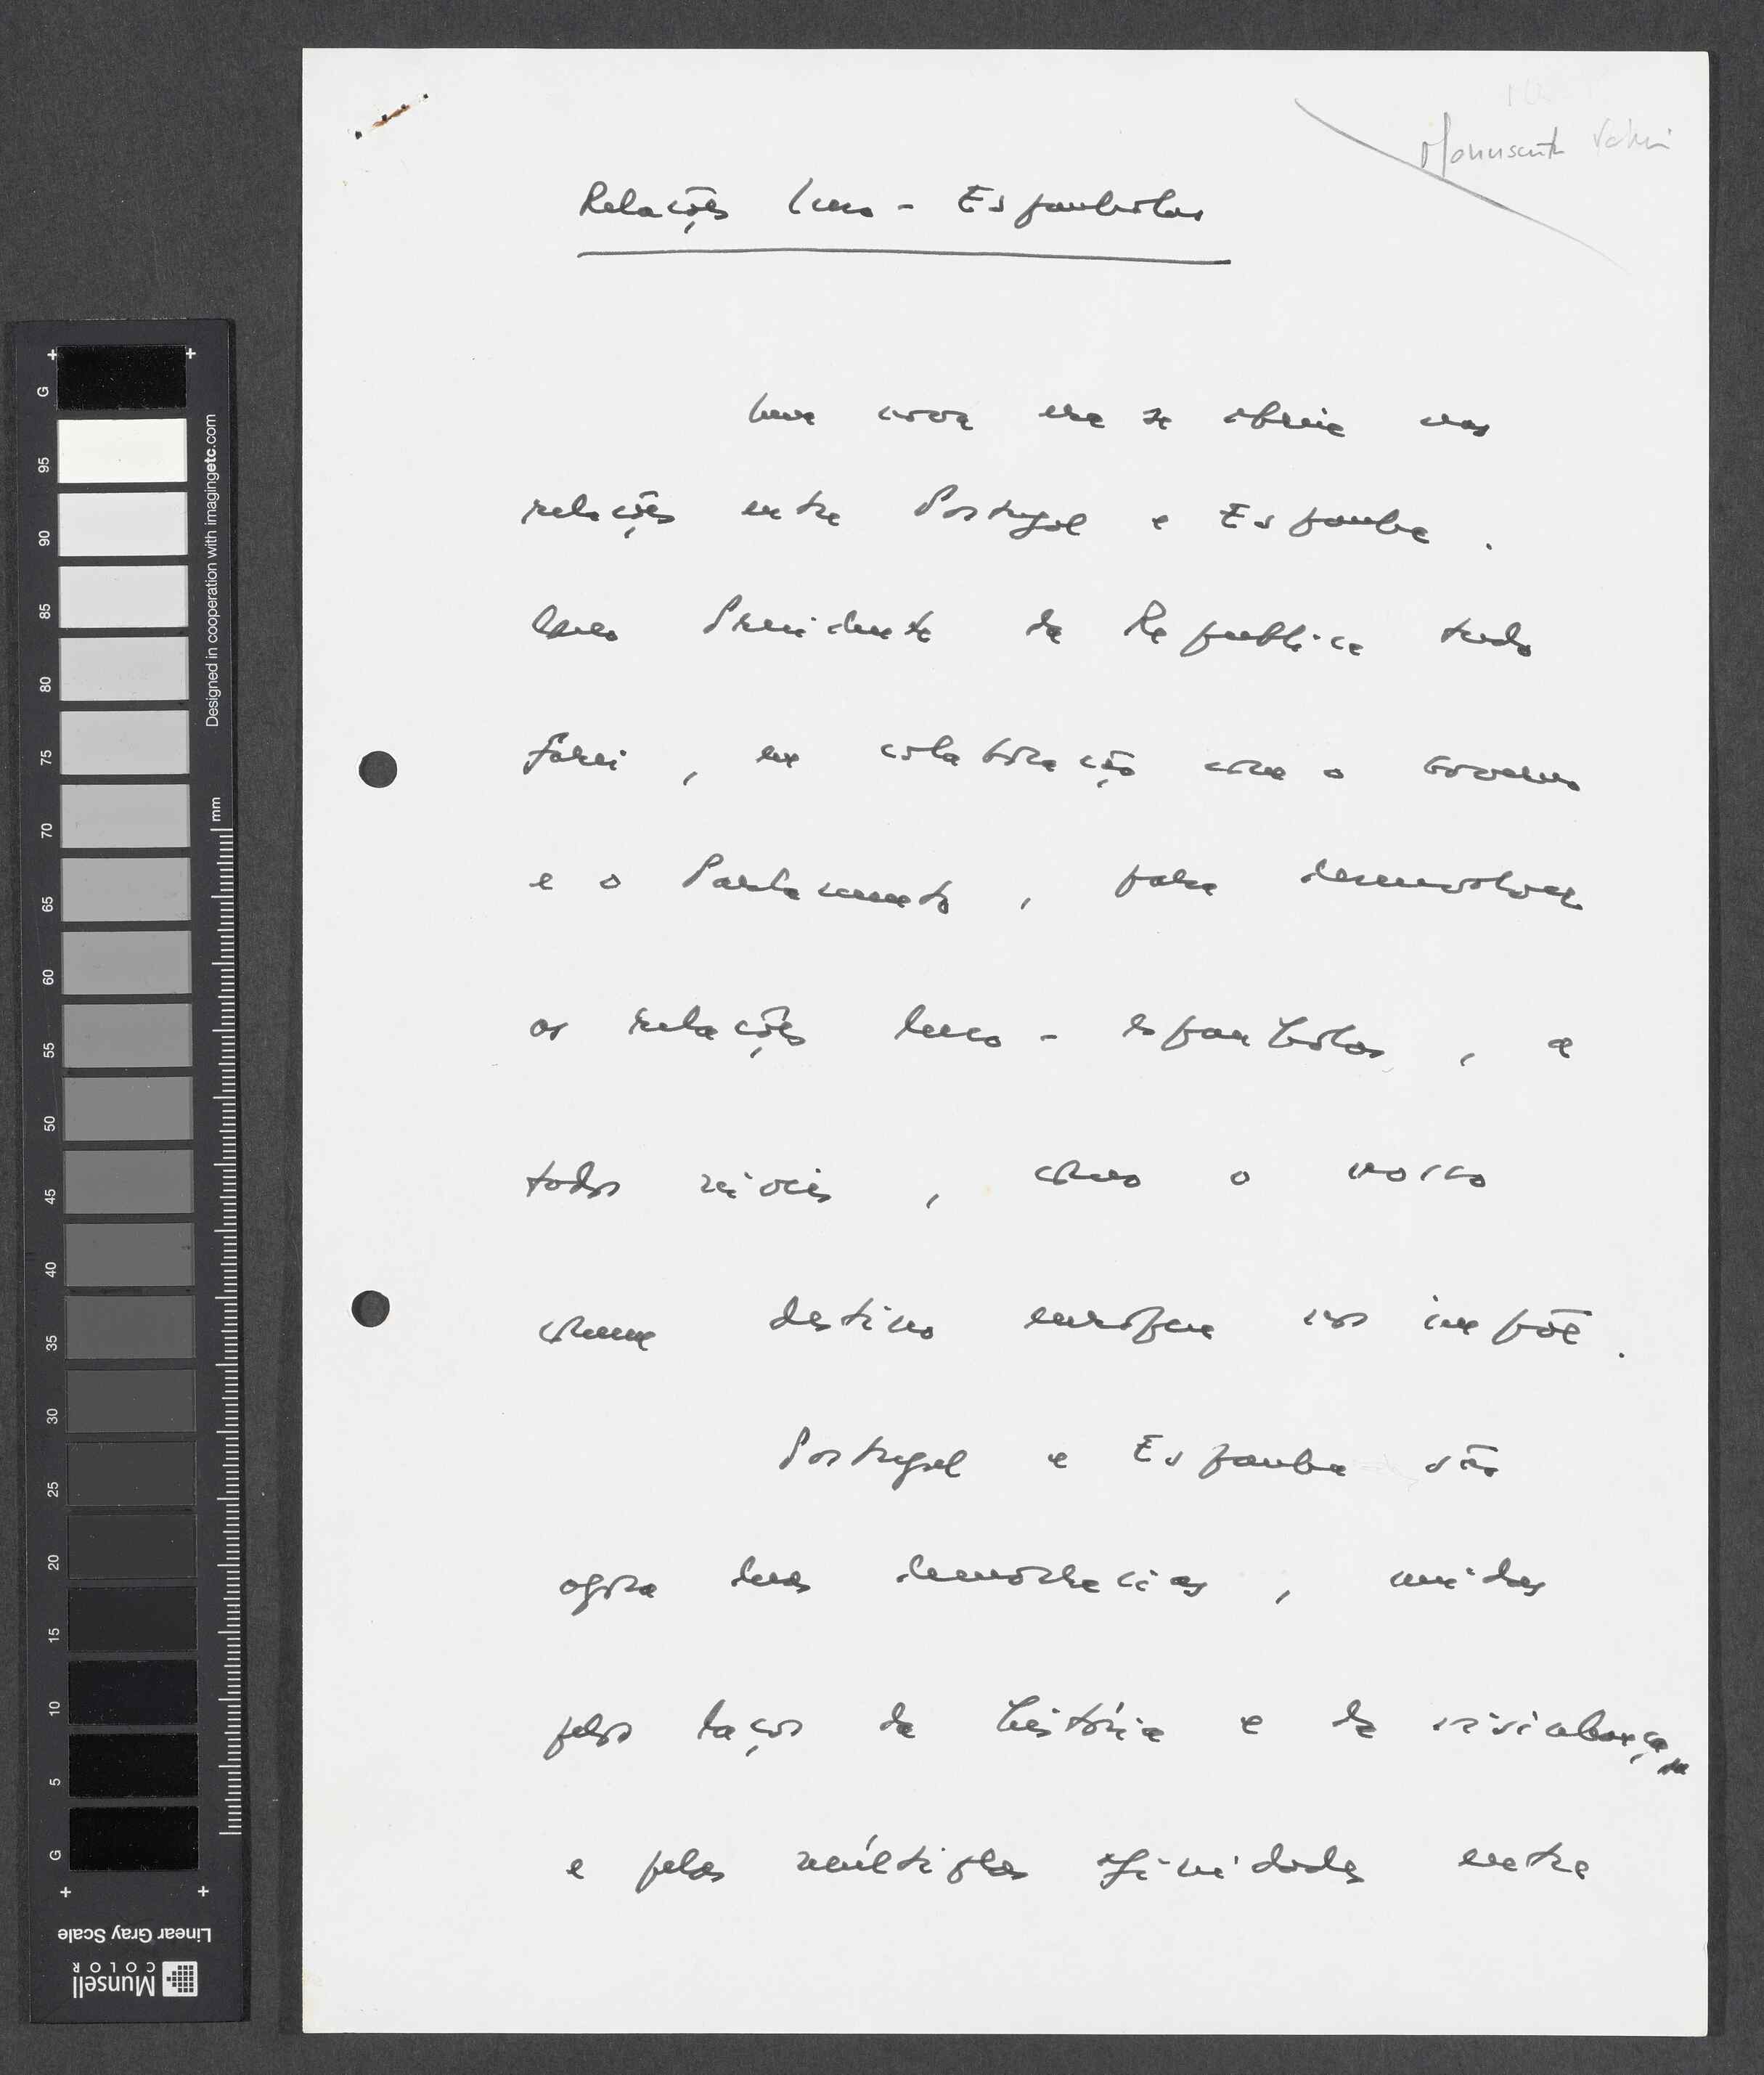 Manuscrito
Relações Luso - Espanholas
Uma nova era se abriu nas
relações entre Portugal e Espanha.
Como Presidente da Republica tudo
farei, em colaboração com o Governo
e o Parlamento, para desenvolver
as relações luso - espanholas, a
todos níveis, como o nosso
comum destino europeu nos impõe.
Portugal e Espanha são
agora duas democracias, unidas
pelos laços da história e da vizinhança
e pelas múltiplas afinidades entre
G
95
90
85
80
75
70
65
60
55
50
45
40
35
30
25
20
15
10
5
G
mm
Designed in cooperation with imagingetc.com
Linear Gray Scale
Munsell
COLOR